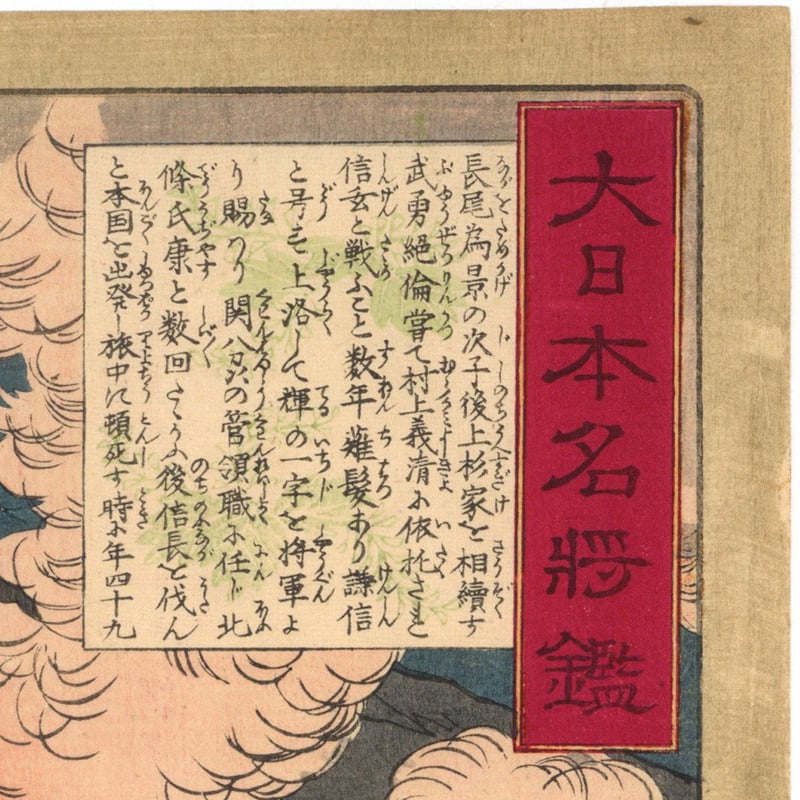 大日本名将鑑
長尾為景の次子後上杉家を相續す
武勇絕倫嘗て村上義清に依托され
信玄と戦ふこと数年薙髪あり謙信
と号す上洛して輝の一字を将軍よ
り賜はり関八州の菅領職に任じ北
條氏康と数回たゝかふ後信長を伐ん
と本国を出発し旅中に頓死す時に年四十九